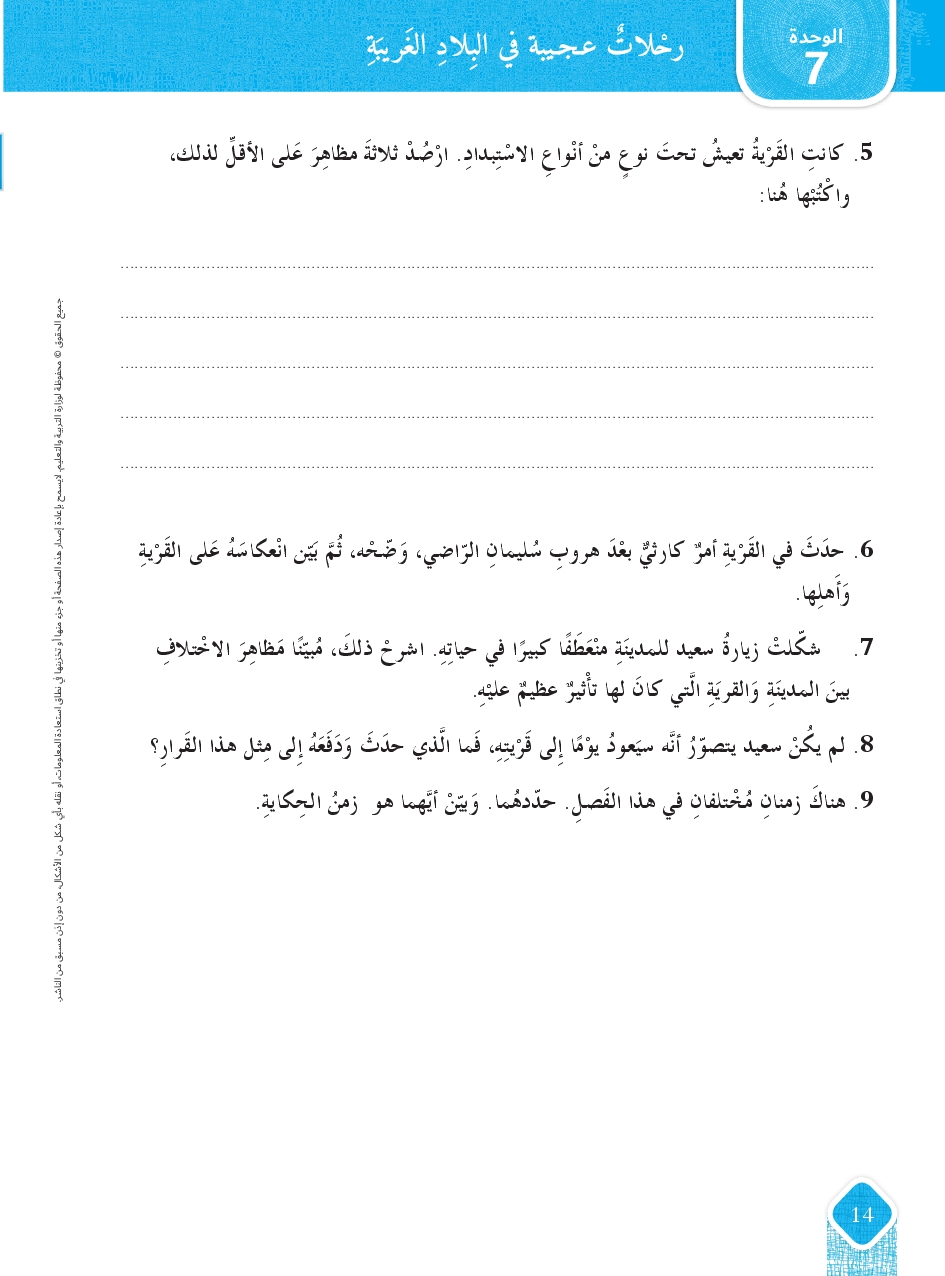 الوحدة
7
رحْلاتٌ عجيبة في البِلادِ الغَريبَةِ
5. كانتِ القَرْيةُ تعيشُ تحتَ نوعٍ منْ أنْواعِ الاسْتِبدادِ. ارْصُدْ ثلاثةَ مظاهِرَ عَلى الأقلِّ لذلك،
واكْتُبْها هُنا:
6. حدَثَ في القَرْيةِ أمرٌ كارثيٌّ بعْدَ هروبِ سُليمانِ الرّاضي، وَضّحْه، ثُمَّ بَيّن انْعكاسَهُ عَلى القَرْيةِ
وَأَهلِها.
7. شكّلتْ زيارةُ سعيد للمدينَةِ منْعَطَفًا كبيرًا في حياتِهِ. اشرحْ ذلكَ، مُبيّنًا مَظاهِرَ الاخْتلافِ
بينَ المدينَةِ وَالقريَةِ الَّتي كانَ لها تأْثيرٌ عظيمٌ عليْهِ.
8. لم يكُنْ سعيد يتصوّرُ أنَّه سيَعودُ يوْمًا إلى قَرْيتِهِ، فَما الَّذي حدَثَ وَدَفَعَهُ إلى مِثل هذا القَرارِ؟
9. هناكَ زمنانِ مُخْتلفانِ في هذا الفَصلِ. حدّدهُما. وَبيّنْ أيَّهما هو زمنُ الحِكايةِ.
جميع الحقوق © محفوظة لوزارة التربية والتعليم. لايسمح بإعادة إصدار هذه الصفحة أو جزء منها أو تخزينها في نطاق استعادة المعلومات، أو نقله بأي شكل من الأشكال، من دون إذن مسبق من الناشر.
14